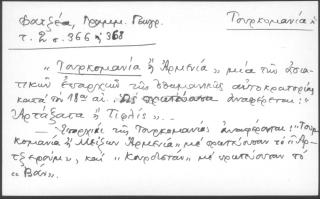 Φατζέα, Γραμμ. Γεωγρ. Τουρκομανία ἡ
τ. 2 σ. 366 ἡ 368
"Τουρκομανία ἢ Ἀρμενία" μία τῆς Ἀσιατικῶν ἐπαρχιῶν τῆς ὀθωμανικῆς αὐτοκρατορίας
κατὰ τὴν 18ην αἰ. Ὡς πρωτεύουσα ἀναφέρεται:
Ἀρτάξατα ἢ Τιφλίς" .-
— Ἐπαρχίαι τῆς Τουρκομανίας ἀναφέρονται: "Τουρ-
κομανία ἢ Μείζων Ἀρμενία" μὲ πρωτεύουσαν τὸ "Ἀρτ-
ζερούμ", καὶ "Κουρδιστάν" μὲ πρωτεύουσαν τὸ
"Βάν".